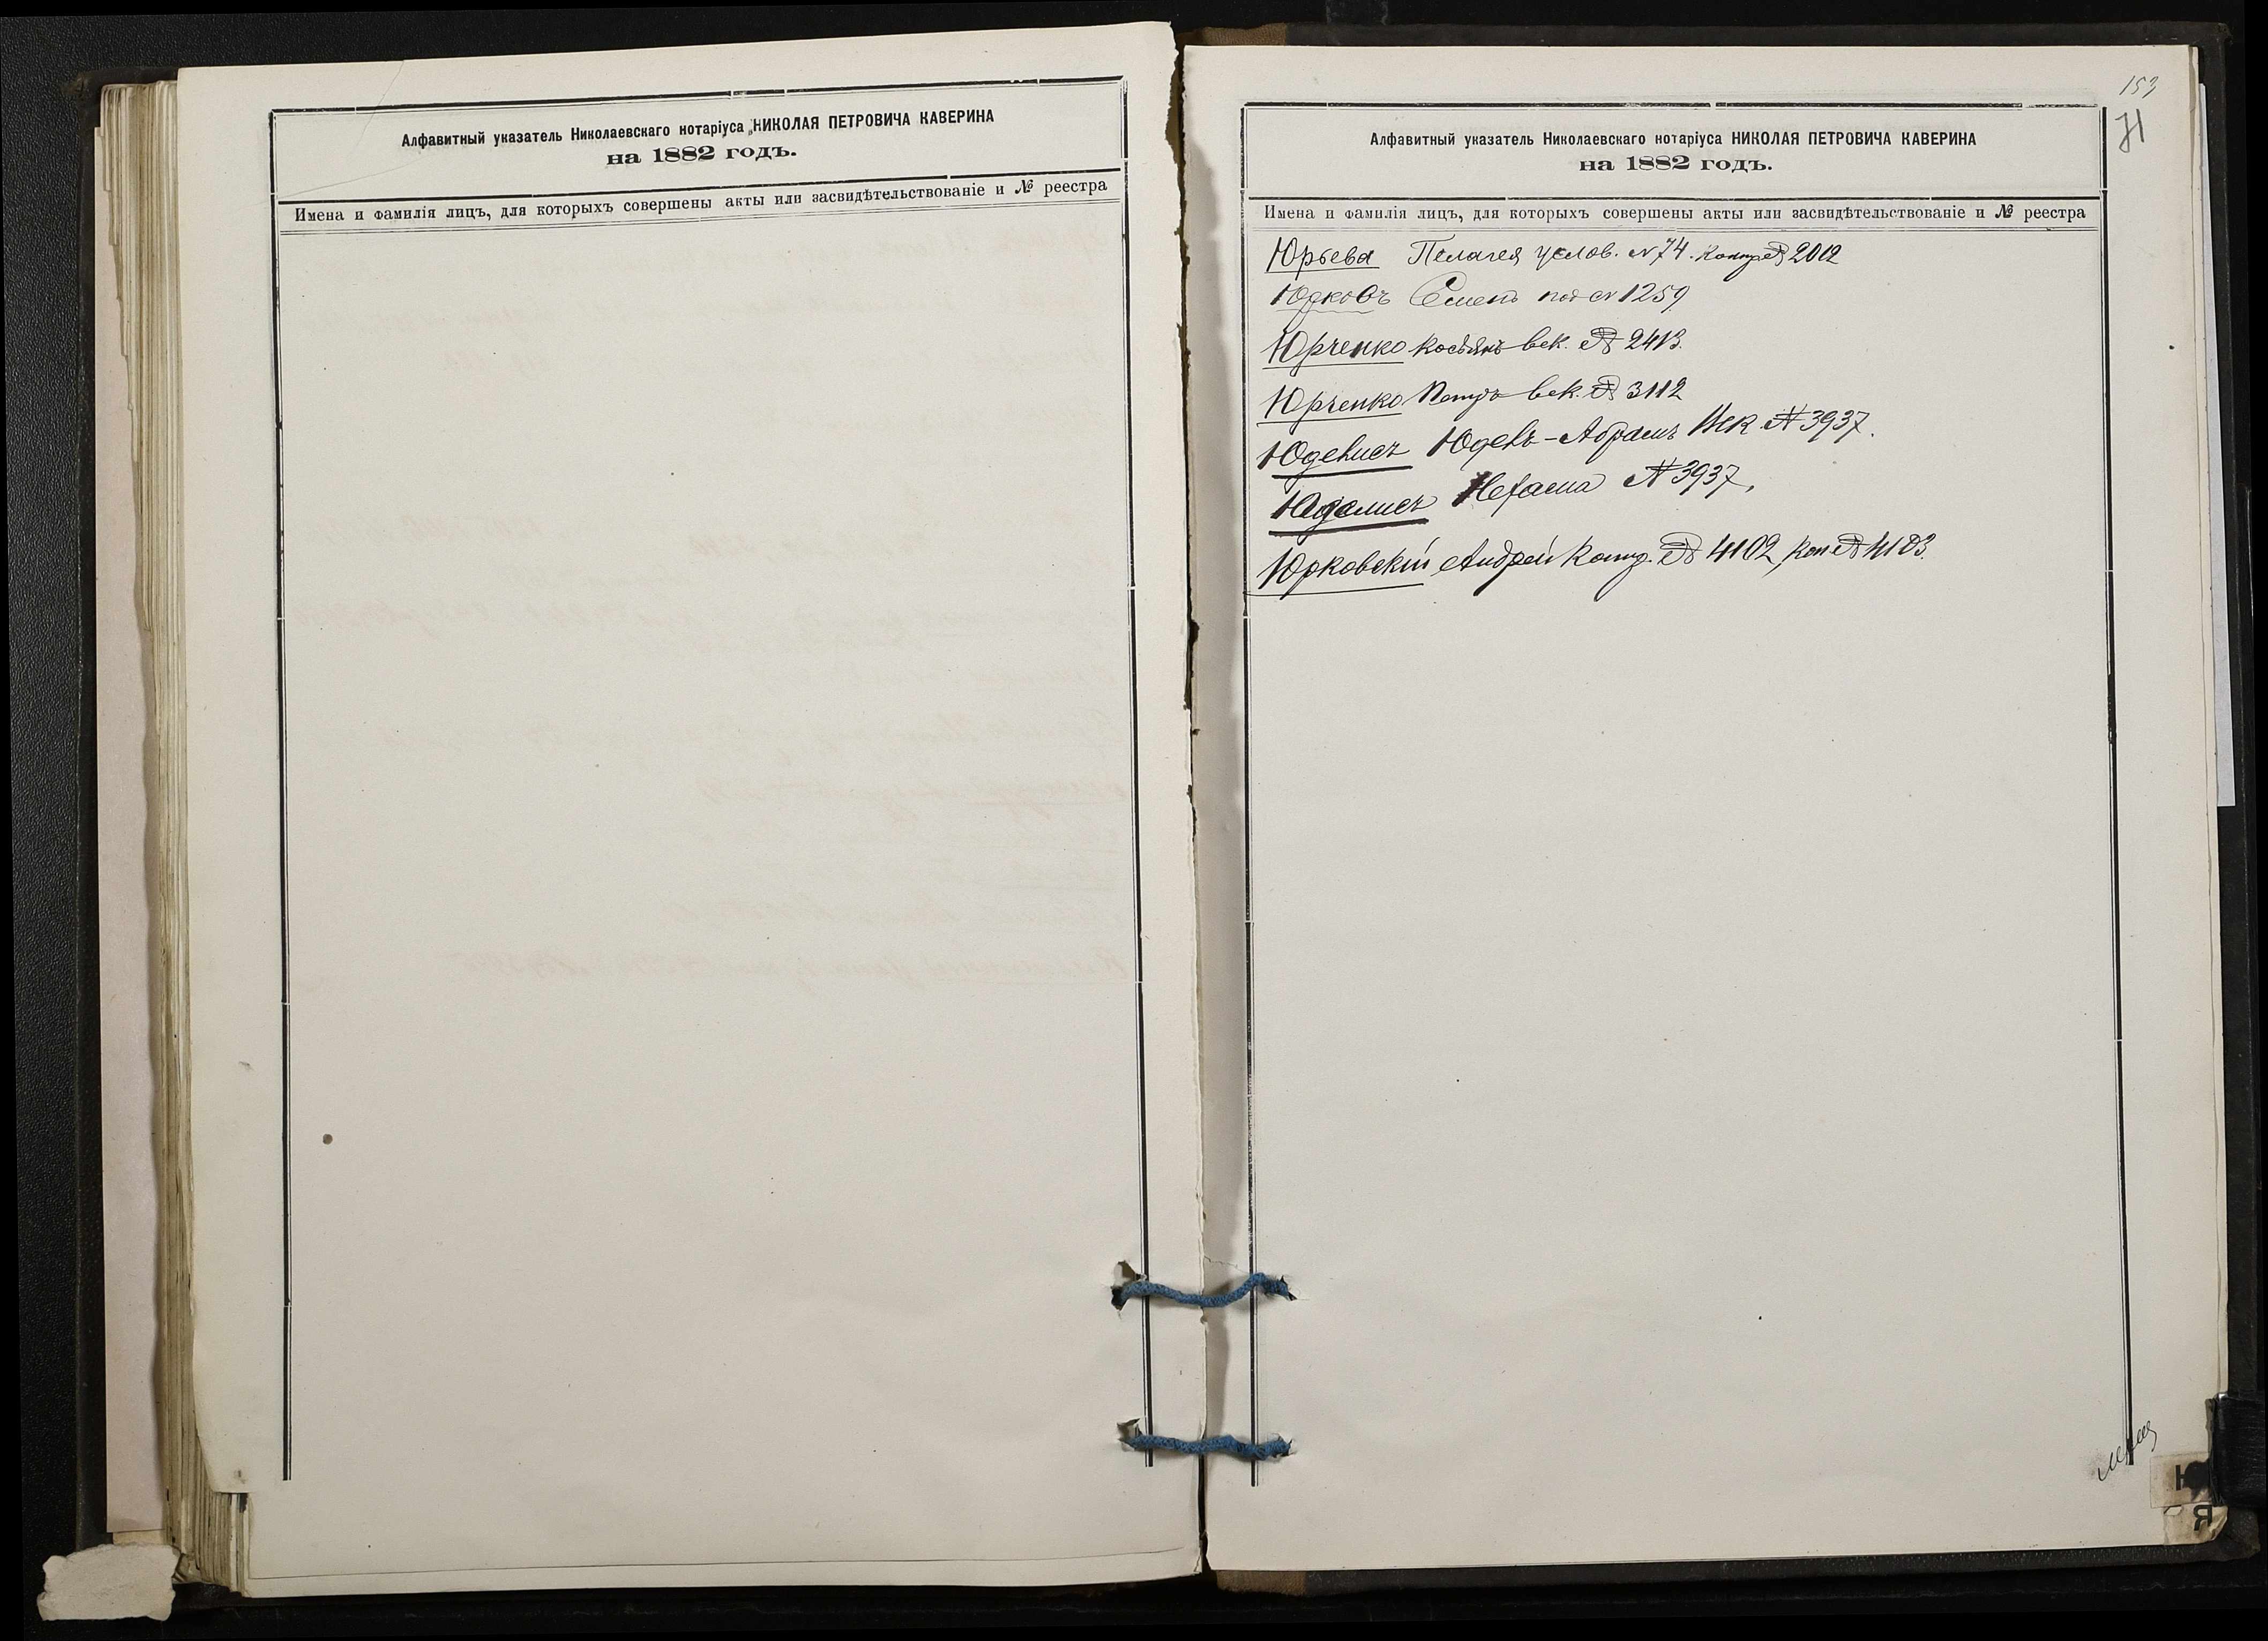 Алфавитный указатель Николаевскаго нотаріуса НИКОЛАЯ ПЕТРОВИЧА КАВЕРИНА
на 1882 годъ.
Имена и фамилія лицъ, для которыхъ совершены акты или засвидѣтельствованіе и № реестра
153
71
Алфавитный указатель Николаевскаго нотаріуса НИКОЛАЯ ПЕТРОВИЧА КАВЕРИНА
на 1882 годъ.
Имена и фамилія лицъ, для которыхъ совершены акты или засвидѣтельствованіе и № реестра
Юрьева Пелагея услов. № 74. Контр № 2012
Юрковъ Семенъ под № 1259
Юрченко Косьянъ век. № 2413.
Юрченко Петръ век. № 3112
Юдевичъ Юдель-Абрамъ Век № 3937.
Нехама № 3937,
Юрковскій Андрей Контр. № 4102, Коп № 4103.
Ю
Я